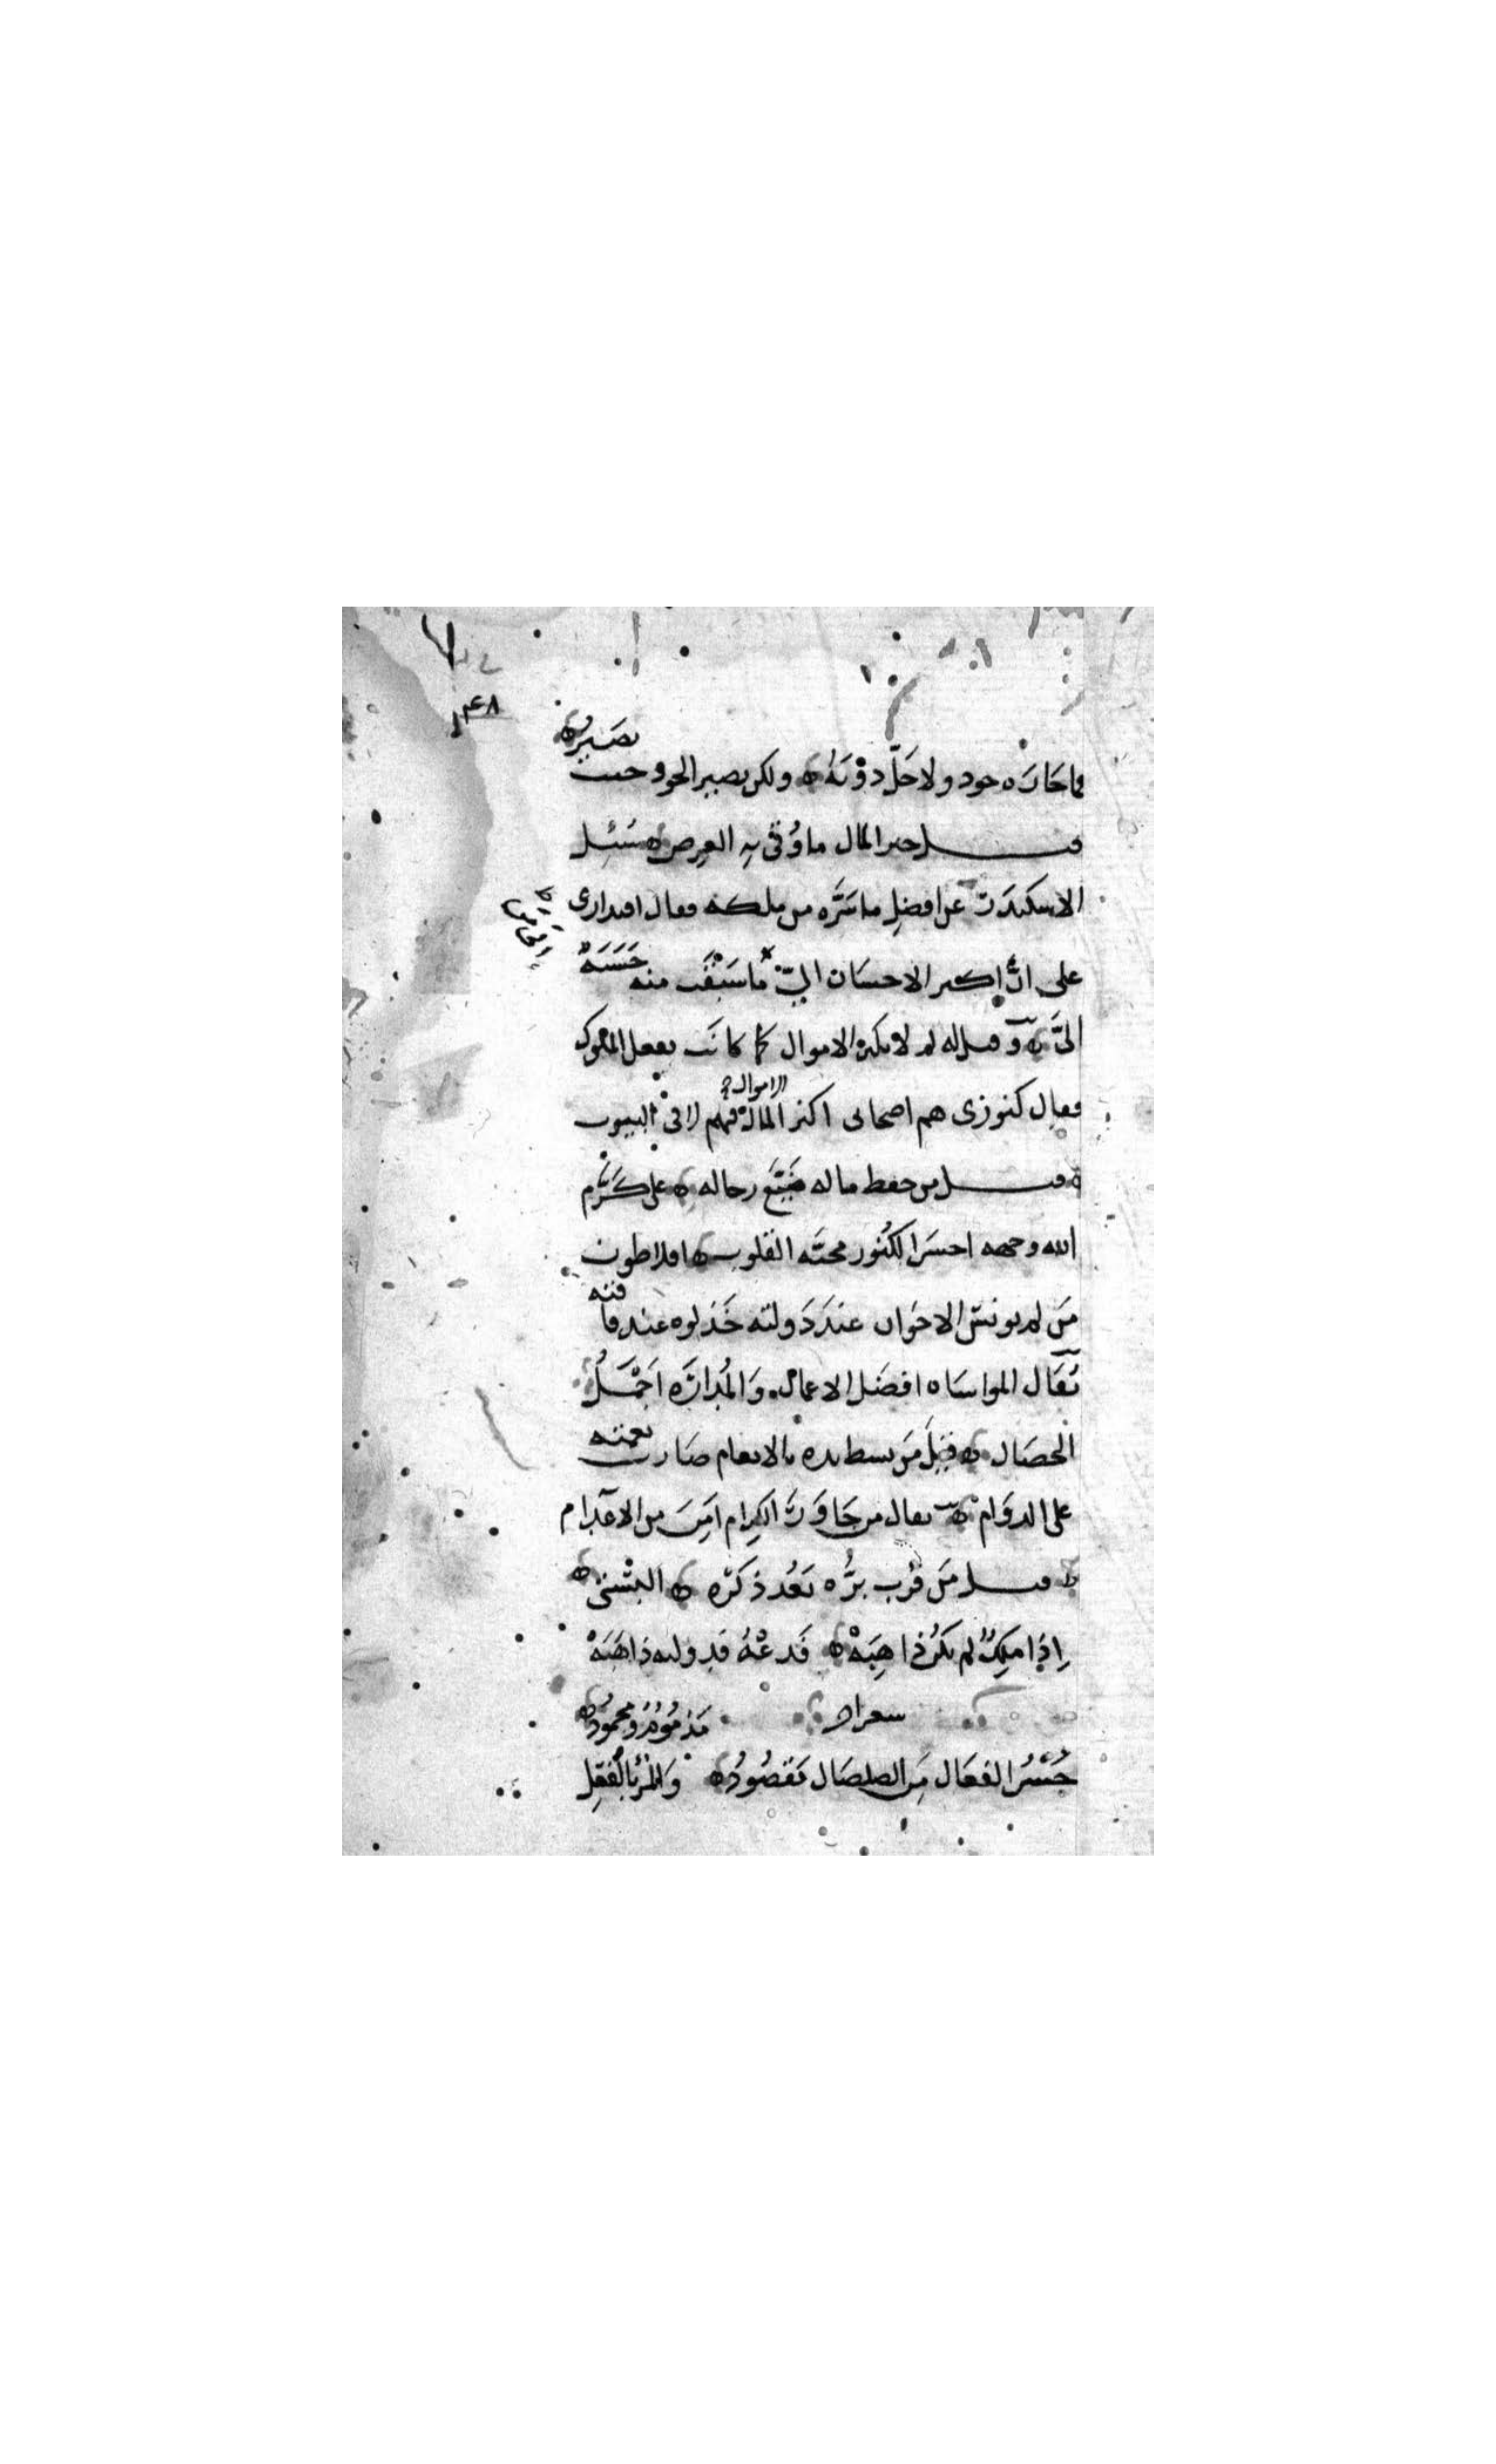 ١٤٨
فما جازه جود ولا حل دونه ولكن يصير الجود حيث يصير
قيل خير المال ما وُقي به العرض سُئِل
الاسكندر عن افضل ما سَرَّه من ملكه فقال اقتداري
على ان اكثر الاحسان الى من سبقت منه حَسَنَة
اليَّ وقيل له لم لا تكنز الاموال كما كانت تفعل الملوك
فقال كنوزي هم اصحابي اكنز الاموال فيهم لا في البيوت
قيل من حفظ ماله ضَيَّعَ رجاله علي كَرَّم
الله وجهه احسن الكنوز محبة القلوب افلاطون
مَن لم يواس الاخوان عند دَولته خَذلوه عند فاقته
يُقَال المواساة افضل الاعمال والمُداراة اَجْمَلُ
الخصال قيل مَن بسط يده بالانعام صَان نعمته
على الدوام يقال من جَاوَرَ الكرام اَمِنَ من الاعدام
قيل مَن قرب برُّه بَعُد ذكره البُسْتي
اِذا مَلِكٌ لم يكن ذا هِبَهْ فَدَعْهُ فدولته ذاهبَهْ
شعر اخر
حُسْنُ الفعَال مِنَ الصلصال مَقصُودُ والمرْءُ بالفِعْلِ مَذمُومٌ ومحمودُ